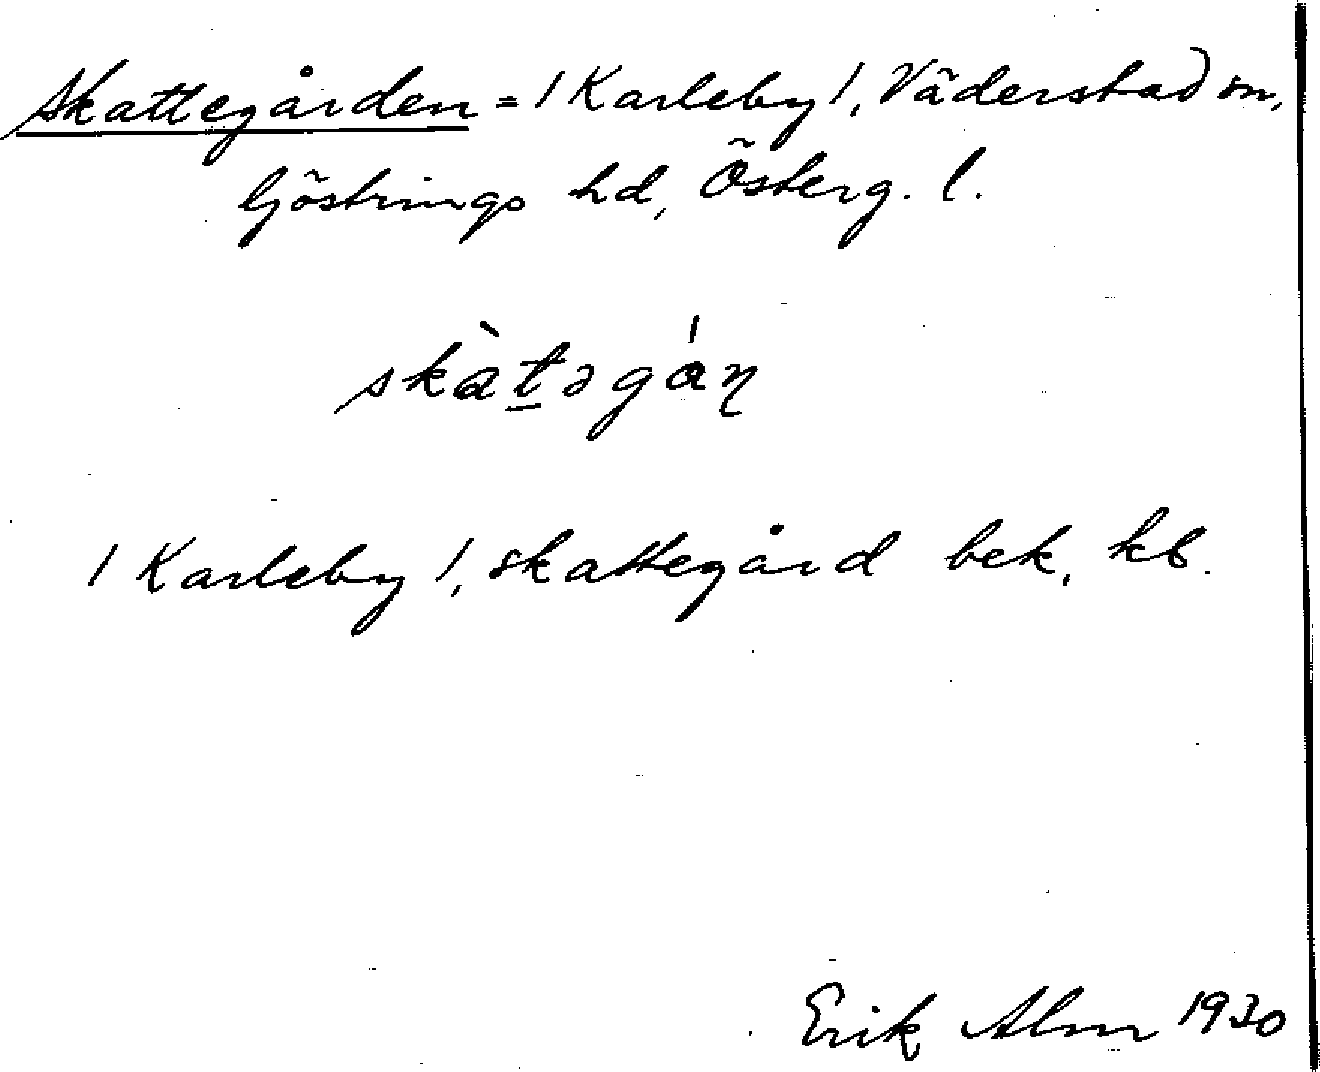 Skattegården = / Karleby /, Väderstad sn,
Göstrings hd, Österg. l.
skàt̲əgán̥
/ Karleby /, skattegård bek, kb.
Erik Alm 1930